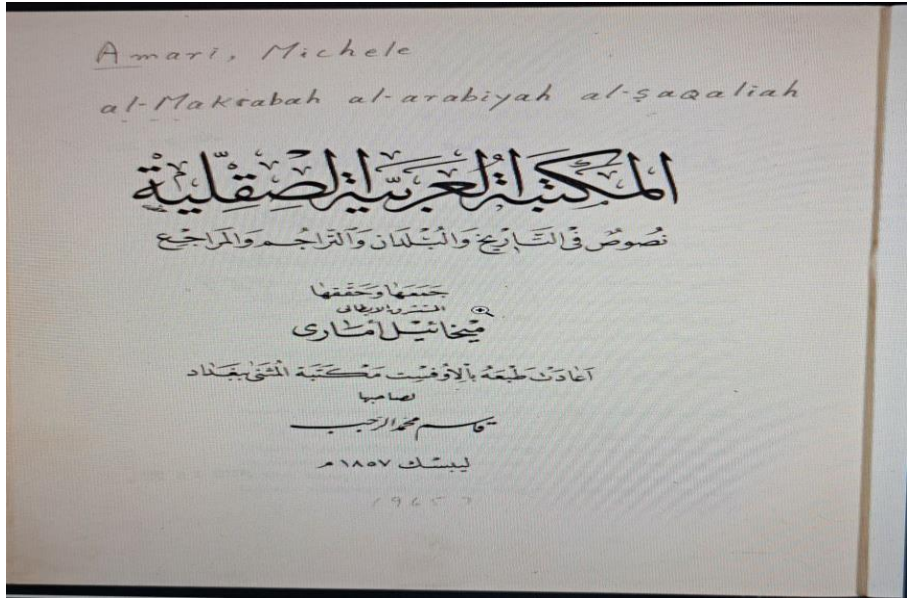 Amari, Michele
al-Maktabah al-arabiyah al-ṣaqaliah
المكتبة العربية الصقلية
نصوص في التاريخ والبلدان والتراجم والمراجع
جمعها وحققها
المستشرق الايطالي
ميخائيل أماري
أعادت طبعه بالأوفست مكتبة المثنى ببغداد
لصاحبها
قاسم محمد الرجب
ليبسك ١٨٥٧ م
1965?